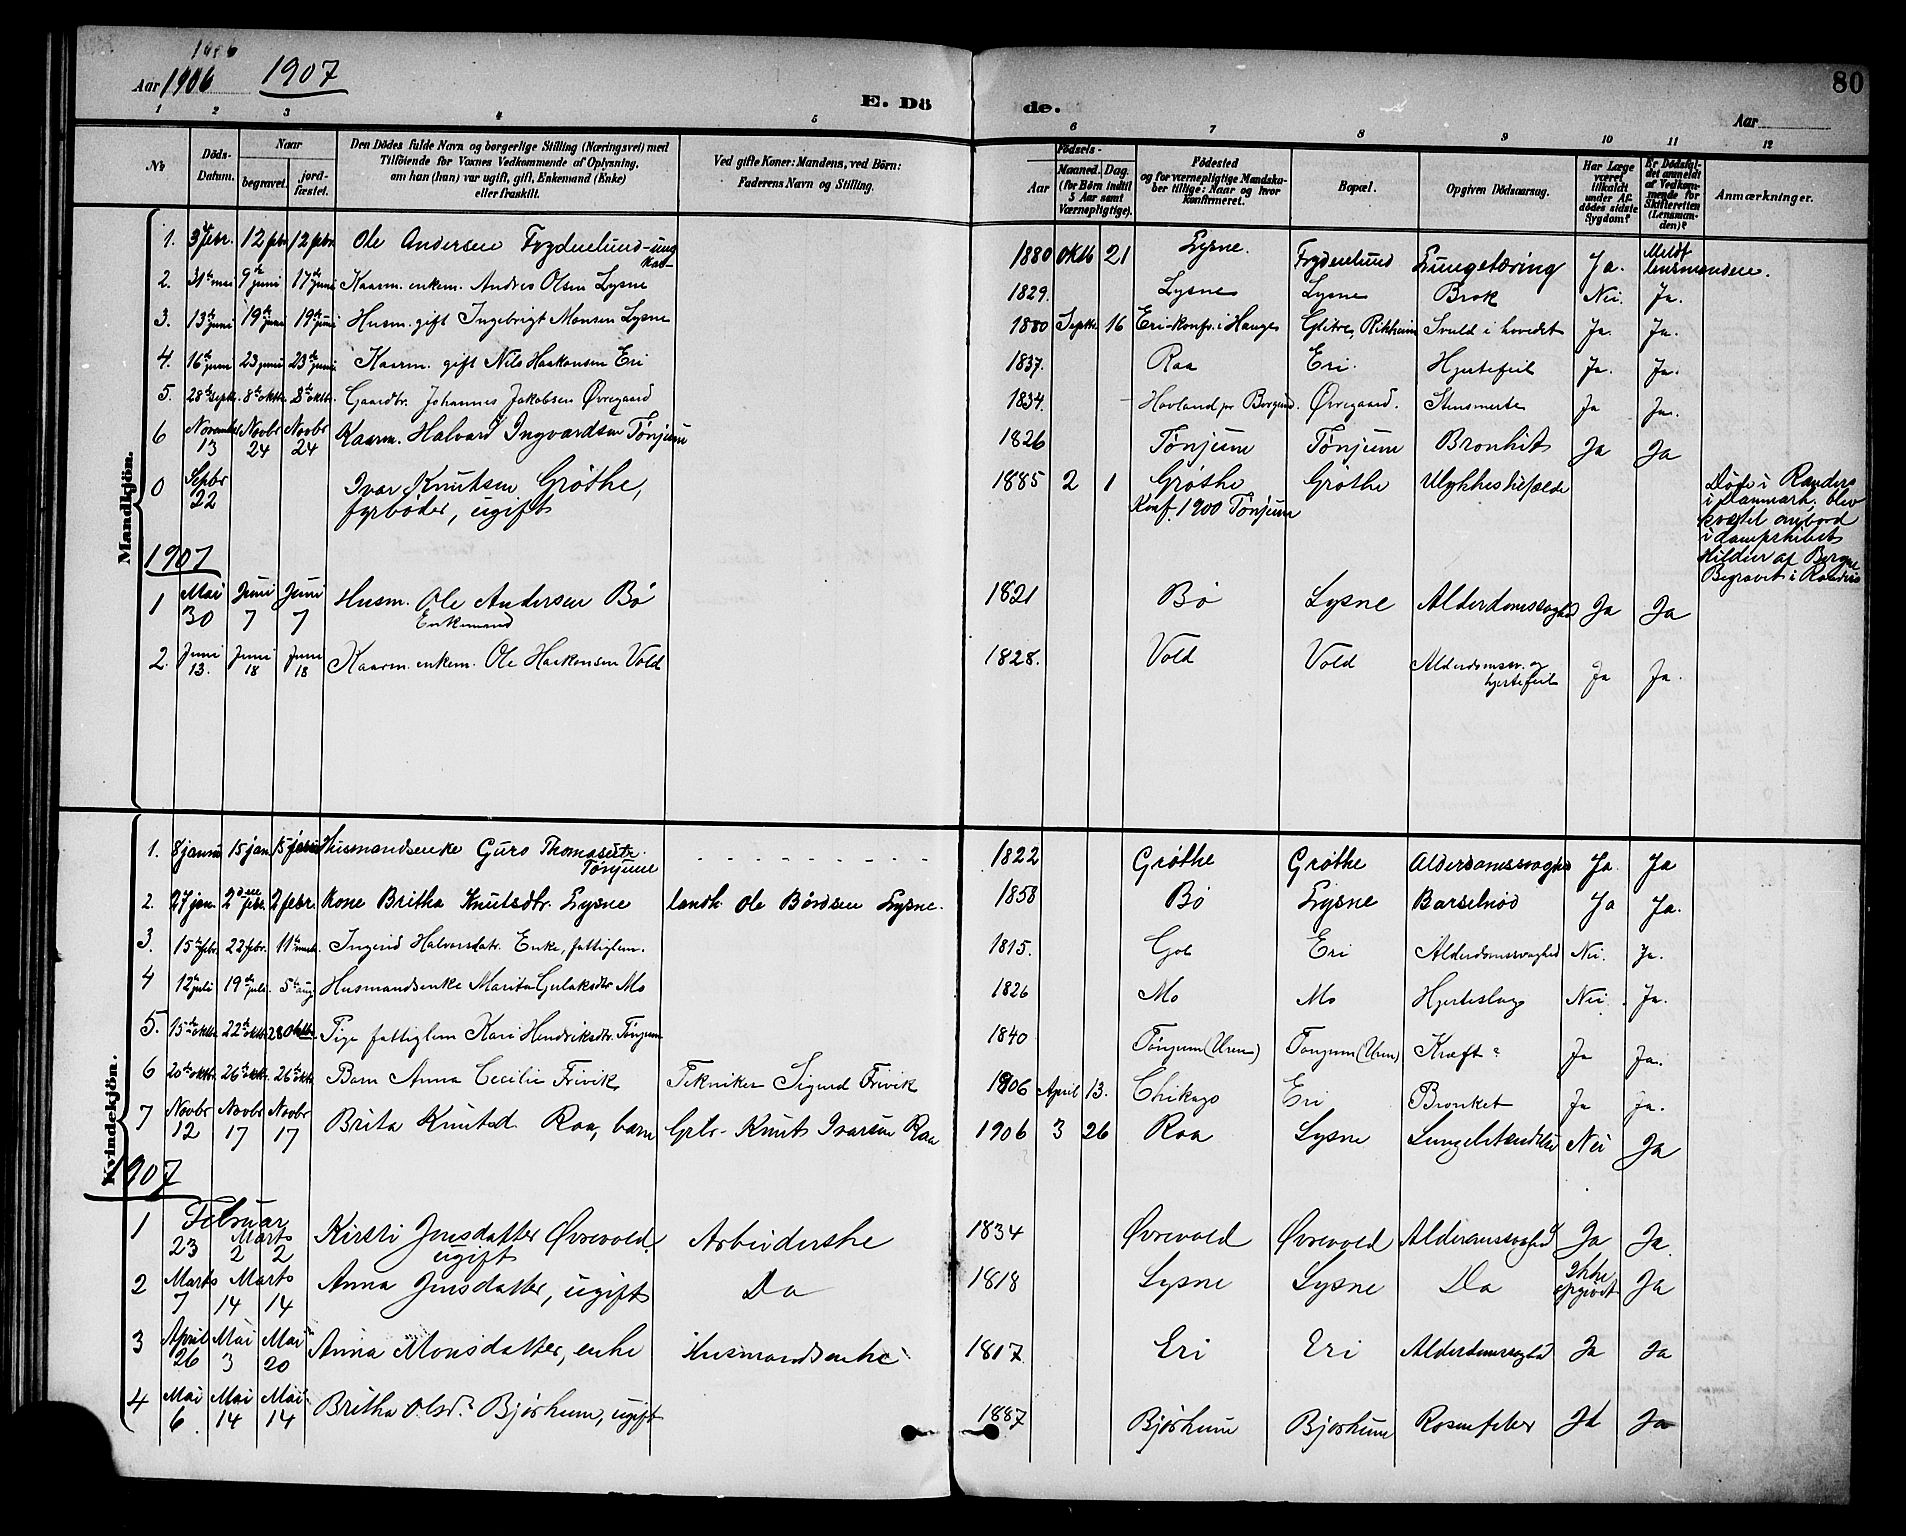 1906
Aar 1906 1907
E. Döde.
80
Aar
1 2 3 4 5 6 7 8 9 10 11 12
No
Döds-Datum.
Naar
begravet.
jordfæstet.
Den Dödes fulde Navn og borgerlige Stilling (Næringsvei) med
Tilföiende for Voxnes Vedkommende af Oplysning,
om han (hun) var ugift, gift, Enkemand (Enke)
eller fraskilt.
Ved gifte Koner: Mandens, ved Börn:
Faderens Navn og Stilling.
Födsels-
Aar
Maaned. Dag.
(for Börn indtil
5 Aar samt
Værnepligtige).
Födested
og for værnepligtige Mandskaber tillige: Naar og hvor
konfirmeret.
Bopæl.
Opgiven Dödsaarsag.
Har Læge
været
tilkaldt
under Afdödes sidste
Sygdom?
Er Dödsfaldet anmeldt
af Vedkommende for
Skifteretten
(Lensmanden)?
Anmærkninger.
Mandkjön.
1. 3 febr. 12 febr 12 febr Ole Andersen Frydenlund - ungkar 1880 Oktb 21 Lysne. Frydenlund Lungetæring Ja. Meldt lensmanden.
2. 31te mai 9de juni 17de juni Kaarm. enkem. Andres Olsen Lysne 1829. Lysne Lysne Brok Nei. Ja.
3. 13de juni 19de juni 19de juni Husm. gift Ingebrigt Monsen Lysne 1880 Septbr 16 Eri - konfr. i Hauge Glitre, Rikheim Svuld i hovedet Ja. Ja.
4. 16de juni 23 juni 23de juni Kaarm. gift Nils Haakonsen Eri 1837. Raa Eri. Hjertefeil Ja. Ja.
5. 28de septb. 8de oktb. 8de oktbr. Gaardbr. Johannes Jakobsen Øvregaard 1834. Hovland pr Borgund. Øvregaard. Stensmerte Ja Ja.
6 November 13 Novbr 24 Novbr 24 Kaarm. Halvard Ingvardsen Tønjum 1826 Tønjum Tønjum Bronkit Ja Ja
0 Sepbr 22 Ivar Knutsen Grøthe, 1885 2 1 Grøthe Grøthe Ulykkestilfælde
fyrbøder, ugift Konf. 1900 Tønjum
Døde i Randers
i Danmark, blev
kvæstet ombord
i dampskibet
Hildur af Bergen
Begravet i Randers
1907
1 Mai 30 Juni 7 Juni 7 Husm. Ole Andersen Bø 1821 Bø Lysne Alderdomssvaghed Ja Ja
Enkemand
2. Juni 13. Juni 18 Juni 18 Kaarm. enkem. Ole Haakonsen Vold 1828. Vold Vold Alderdomssv. og hjertefeil Ja Ja.
Kvindekjön.
1. 8 januar 15 jan 15 febr Husmandsenke Guro Thomasdtr. Tønjum 1822 Grøthe Grøthe Alderdomssvaghed Ja. Ja
2. 27 jan. 2den febr. 2 febr. Kone Britha Knutsdtr. Lysne landh. Ole Bårdsen Lysne. 1858 Bø Lysne Barselnød Ja Ja.
3. 15de febr. 22 febr. 11te marts Ingerid Halvorsdatr. Enke, fattiglem. 1815. Gol Eri Alderdomssvaghed Nei. Ja.
4 12te juli 19de juli. 5te aug Husmandsenke Marita Gulaksdtr Mo 1826 Mo Mo Hjerteslag Nei. Ja.
5. 15de oktbr. 22de oktbr 28 Oktbr. Pige fattiglem Kari Hendriksdtr. Tönjum 1840 Tönjum (Uren) Tonjum (Uren) Kræft? Ja Ja.
6 20de oktbr. 26de oktb. 26de oktb. Barn Anna Cecilie Frivik Tekniker Sigurd Frivik 1906 April 13. Chikago Eri Bronket Ja Ja.
7 Novbr 12 Novbr 17 Novbr 17 Brita Knutsd. Raa, barn Grbr. Knut Ivarsen Raa 1906 3 26 Raa Lysne Lungebetændelse Nei Ja
1907
1 Februar 23 Marts 2 2 Kirsti Jensdatter Øvrevold. Arbeiderske 1834 Øvrevold Øvrevold Alderdomssvaghed Ja Ja.
ugift
2 Marts 7 Marts 14 14 Anna Jensdatter, ugift Do 1818 Lysne Lysne Do Ikke opgivet Ja
3 April 26 Mai 3 Mai 20 Anna Monsdatter, enke Husmandsenke 1817 Eri Eri Alderdomssvaghed Ja Ja
4 Mai 6 Mai 14 Mai 14 Britha Olsd. Bjørkum, ugift 1887 Bjørkum Bjørkum Rosenfeber Ja Ja